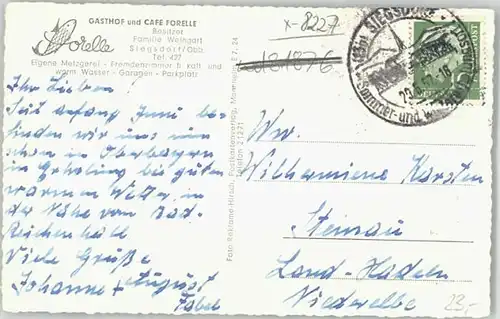 GASTHOF und CAFÉ FORELLE
Besitzer
Familie Weingart
Siegsdorf/Obb.
Tel. 427
Forelle
Eigene Metzgerei - Fremdenzimmer fl. kalt und
warm Wasser - Garagen - Parkplatz
Ihr Lieben!
Seit anfang Juni be-
finden wir uns nun
schon in Oberbayern
in Erholung bei guten
warmen Wetter, in
der Nähe vom Bad-
Reichenhall
Viele Grüße
Johanne + August
Foto Reklame Hirsch, Postkartenverlag,
x-8227
SIEGSDORF
Sommer- und
Ww.
Wilhermiene Karsten
Steinau
Land-Hadeln
Niederelbe
23,-